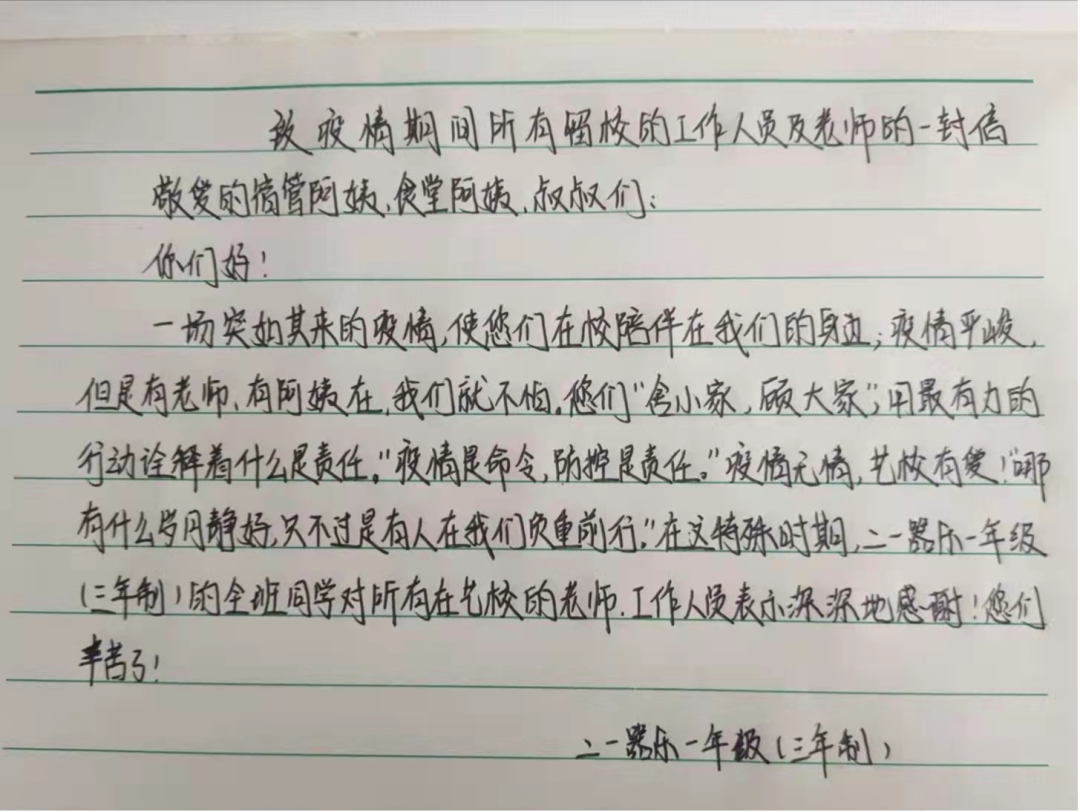 致疫情期间所有留校的工作人员及老师的一封信
敬爱的宿管阿姨,食堂阿姨、叔叔们:
你们好!
一场突如其来的疫情,使您们在校陪伴在我们的身边;疫情严峻,
但是有老师、有阿姨在,我们就不怕。您们“舍小家,顾大家”;用最有力的
行动诠释着什么是责任。“疫情是命令,防控是责任。”疫情无情,艺校有爱!“哪
有什么岁月静好,只不过是有人在我们负重前行。”在这特殊时期,二一器乐一年级
(三年制)的全班同学对所有在艺校的老师、工作人员表示深深地感谢!您们
辛苦了!
二一器乐一年级(三年制)